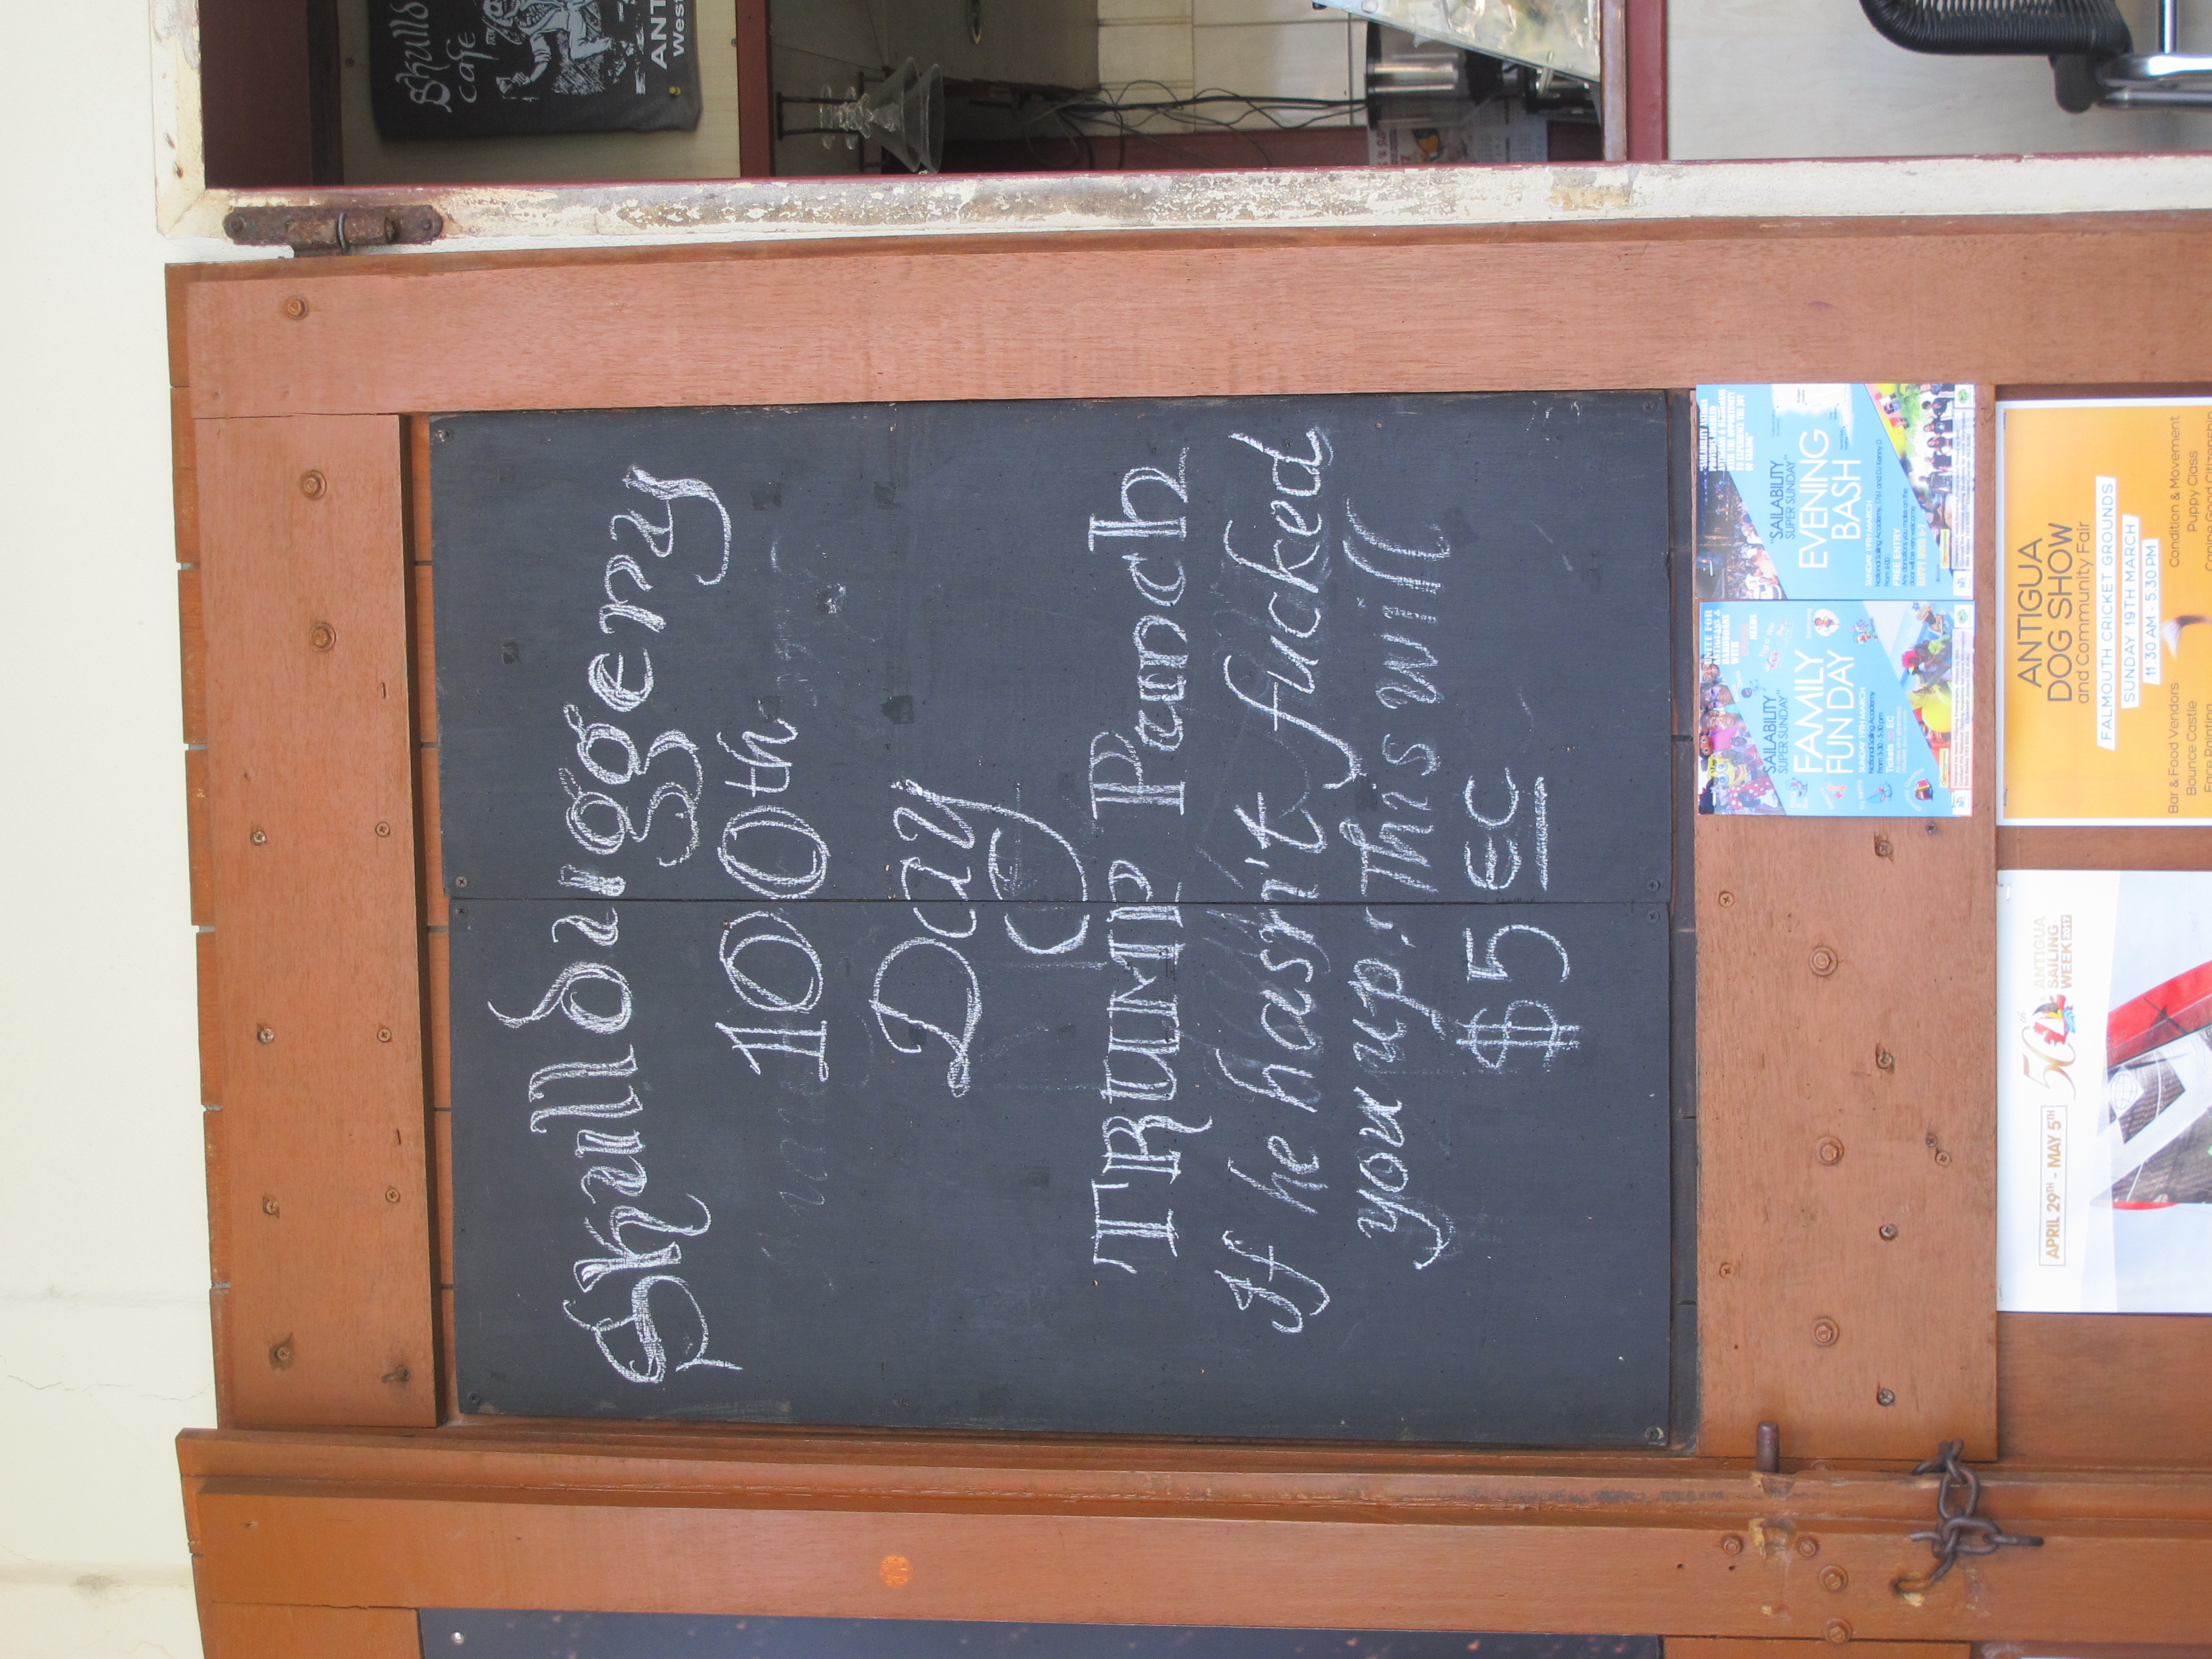 Skulls
cafe
ANT
West
Skullduiggery
100th
Day
TRUMP Punch
If he hasn't fucked
you up, This will
$5 EC
"SAILABILITY
SUPER SUNDAY"
EVENING
BASH
SUNDAY 19TH MARCH
FREE ENTRY
"SAILABILITY
SUPER SUNDAY"
FAMILY
FUN DAY
SUNDAY 19TH MARCH
National Sailing Academy
ANTIGUA
DOG SHOW
and Community Fair
FALMOUTH CRICKET GROUNDS
SUNDAY 19TH MARCH
11 30 AM - 5 30 PM
Bar & Food Vendors
Condition & Movement
Bounce Castle
Puppy Class
Face Painting
Canine Good Citizenship
APRIL 29TH - MAY 5TH
50th
ANTIGUA
SAILING
WEEK 2017